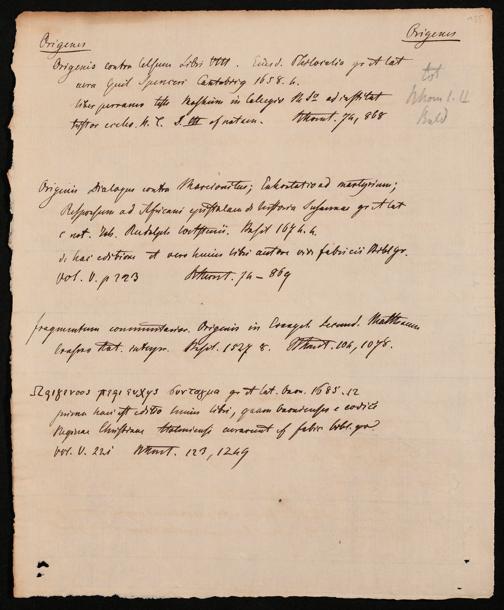 Origenis
Origenes
Origenis contra Celsum Libri VIII. Eiusd. Philocalia gr. et lat
cura Guil Spenceri Cantabrig 1658. 4.
liber perrarus teste in Collegio ad instit at
histor eccles. N. T. P. III
74, 868
Origenis Dialogus contra Marcionitas; Exhortatio ad martyrium;
Responsum ad Africani epistolam de historia Susannae gr. et lat
c not. Joh. Rudolph Wetstenii. Basil 1674. 4.
de hac editione et vero huius libri autore vide fabricii Bibl gr.
Vol. V. p 223 74 – 869
fragmentum commentarior. Origenis in Evangel. secund. Matthaeum
Erasmo Rot. interpr. Basil. 1527 8. 106, 1078.
Ωριγενους περι ευχης συνταγμα gr. et lat. Oxon. 1685. 12
prima haec est editio huius libri, quam Oxonienses e codice
Reginae Christinae Holmiensi curarunt cf fabric bibl. gr.
vol. V. 221 123, 1249